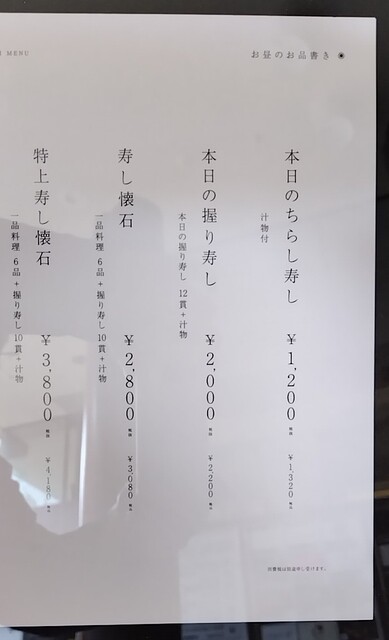 お昼のお品書き
MENU
本日のちらし寿し ¥1,200 税抜 ¥1,320
汁物付
本日の握り寿し ¥2,000 税抜 ¥2,200
本日の握り寿し 12貫+汁物
寿し懐石 ¥2,800 税抜 ¥3,080
一品料理 6品+握り寿し10貫+汁物
特上寿し懐石 ¥3,800 税抜 ¥4,180
一品料理 6品+握り寿し10貫+汁物